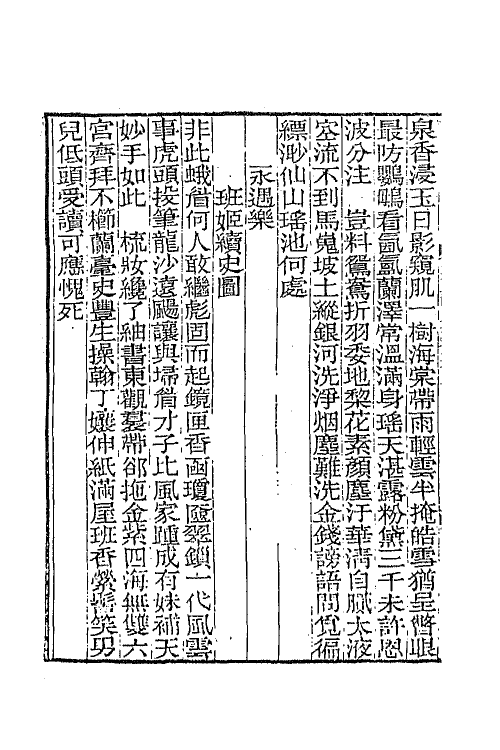 泉香浸玉日影窺肌一樹海棠帶雨輕雲半掩皓雪猶呈瞥眼
最防鸚鵡看氤氳蘭澤常溫滿身瑶天湛露粉黛三千未許恩
波分注　豈料鴛鴦折羽委地棃花素顏塵汙華淸自膩太液
空流不到馬嵬坡土縱銀河洗淨烟塵難洗金錢謗語問覓徧
縹渺仙山瑶池何處
永遇樂
班姬續史圖
非此蛾眉何人敢繼彪固而起鏡匣香函瓊匳翠鎖一代風雲
事虎頭投筆龍沙遠颺讓與掃眉才子比風家踵成有妹補天
妙手如此　梳妝纔了紬書東觀裠帶郤拖金紫四海無雙六
宮齊拜不櫛蘭臺史豐生操翰丁孃伸紙滿屋班香縈髻笑男
兒低頭受讀可應愧死